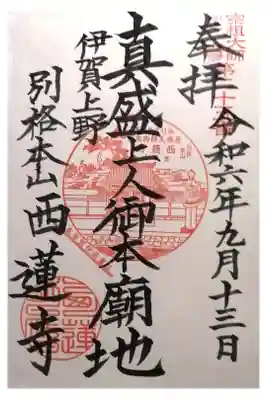 奉拝
令和六年九月十三日
真盛上人御本廟地
伊賀上野
別格本山西蓮寺